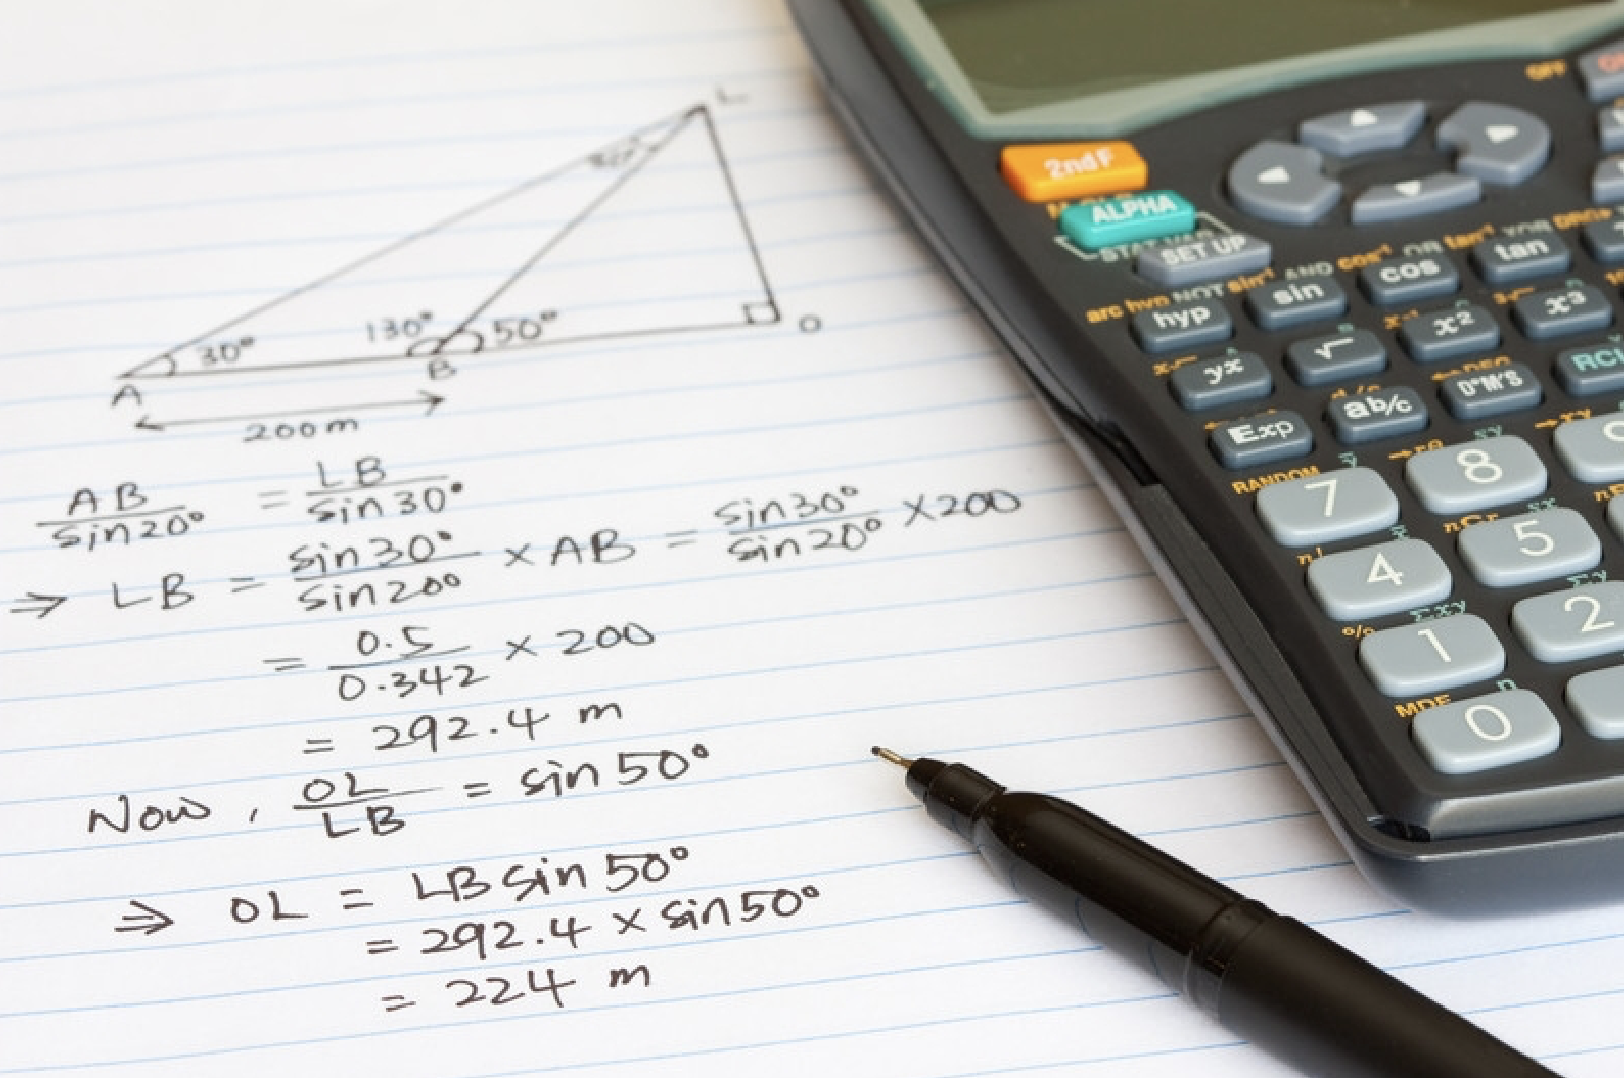 L
30° 130° 50° O
A B
200m
AB/sin20° = LB/sin30°
⇒ LB = sin30°/sin20° × AB = sin30°/sin20° × 200
= 0.5/0.342 × 200
= 292.4 m
Now, OL/LB = sin50°
⇒ OL = LB sin50°
= 292.4 × sin50°
= 224 m
OFF
2ndF
ALPHA
STAT VAR SET UP
arc hyp NOT sin⁻¹ AND cos⁻¹ OR tan⁻¹ XOR DRG
hyp sin cos tan
yˣ √ x² x³
Exp ab/c D°M'S RCL
RANDOM
7 8
4 5
1 2
MDF
0